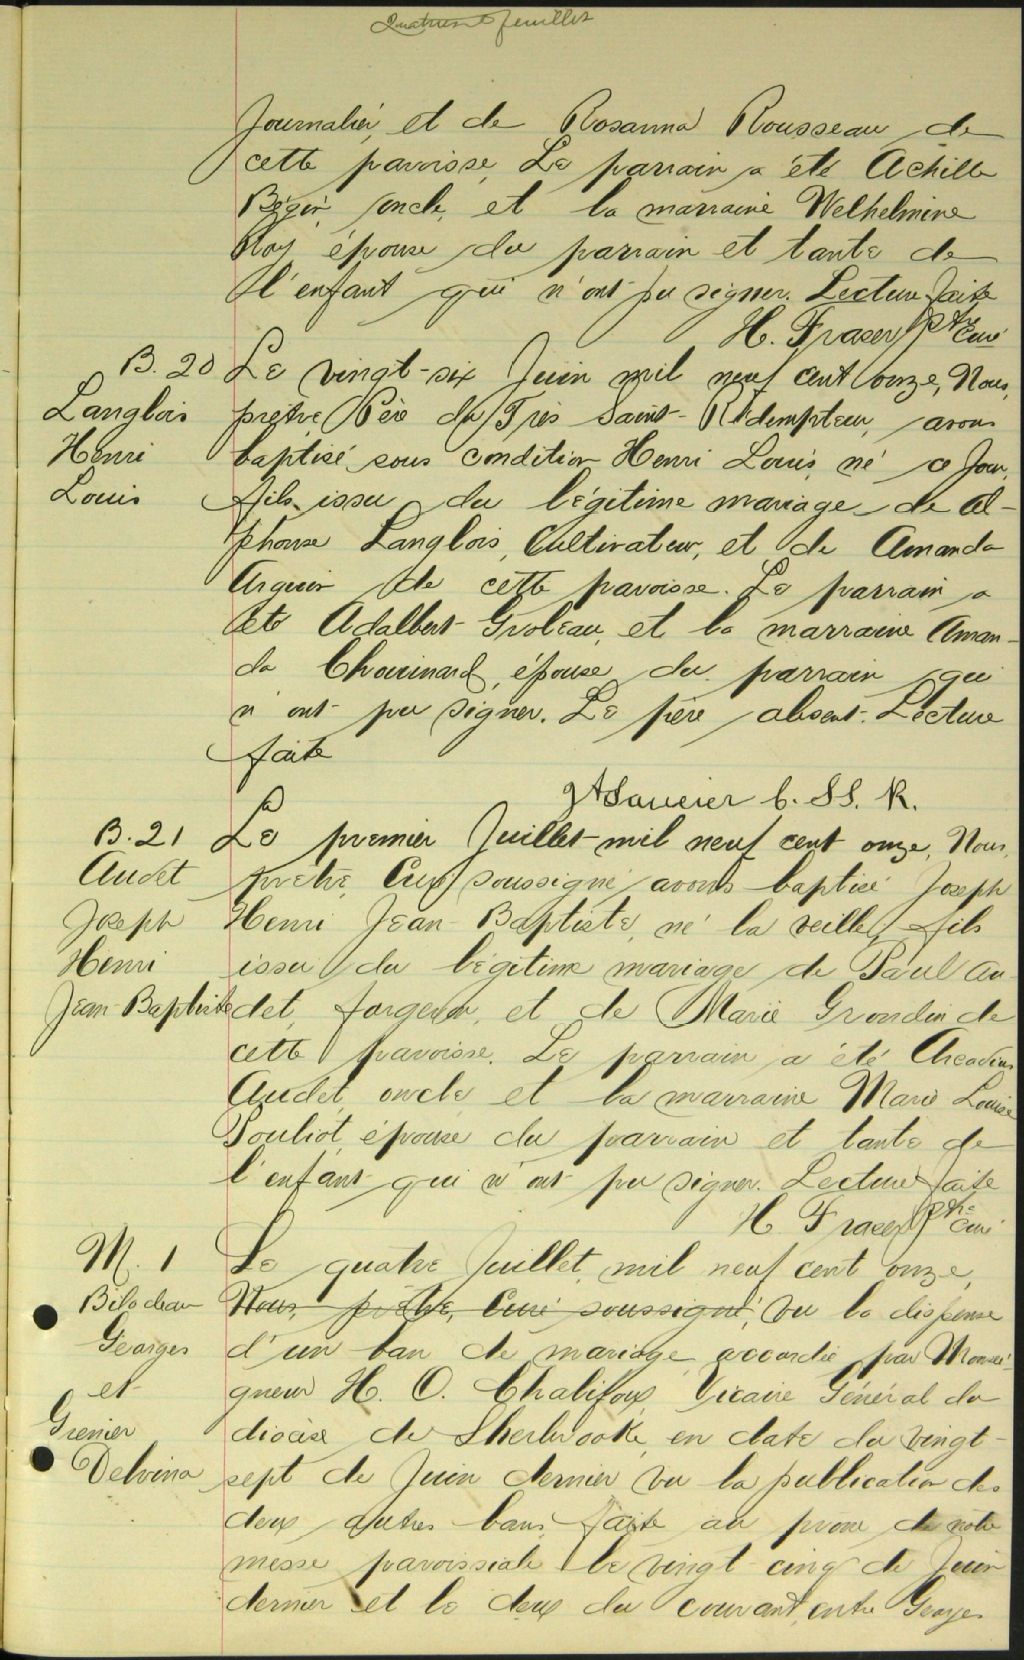 Quatrième feuillet
Journalier, et de Rosanna Rousseau de
cette paroisse. Le parrain a été Achille
Bégin, oncle, et la marraine Welhelmine
Roy épouse du parrain et tante de
l'enfant qui n'ont pu signer. Lecture faite
H. Fraser Ptre Curé
B. 20
Langlois
Henri
Louis
Le vingt-six Juin mil neuf cent onze, Nous,
prêtre Père du Très Saint-Rédempteur, avons
baptisé sous condition Henri Louis, né ce jour,
fils issu du légitime mariage de Al-
phonse Langlois, Cultivateur, et de Amanda
Arguin de cette paroisse. Le parrain a
été Adalbert Groleau et la marraine Aman-
da Chouinard, épouse du parrain qui
n'ont pu signer. Le père absent. Lecture
faite
Saucier C. SS. R.
B. 21
Audet
Joseph
Henri
Jean-Baptiste
Le premier Juillet mil neuf cent onze, Nous,
prêtre, Curé soussigné, avons baptisé Joseph
Henri Jean-Baptiste, né la veille, fils
issu du légitime mariage de Paul Au-
det, forgeron, et de Marie Grondin de
cette paroisse. Le parrain a été Arcadius
Audet, oncle et la marraine Marie Louise
Pouliot, épouse du parrain et tante de
l'enfant qui n'ont pu signer. Lecture faite
H. Fraser Ptre Curé
M. 1
Bilodeau
Georges
et
Grenier
Delvina
Le quatre Juillet, mil neuf cent onze,
Nous, prêtre, Curé soussigné, vu la dispense
d'un ban de mariage accordée par Monsei-
gneur H. O. Chalifoux, Vicaire Général du
diocèse de Sherbrooke, en date du vingt-
sept de Juin dernier vu la publication des
deux autres bans, faite au prône de notre
messe paroissiale le vingt cinq de Juin
dernier et le deux du courant, entre Georges